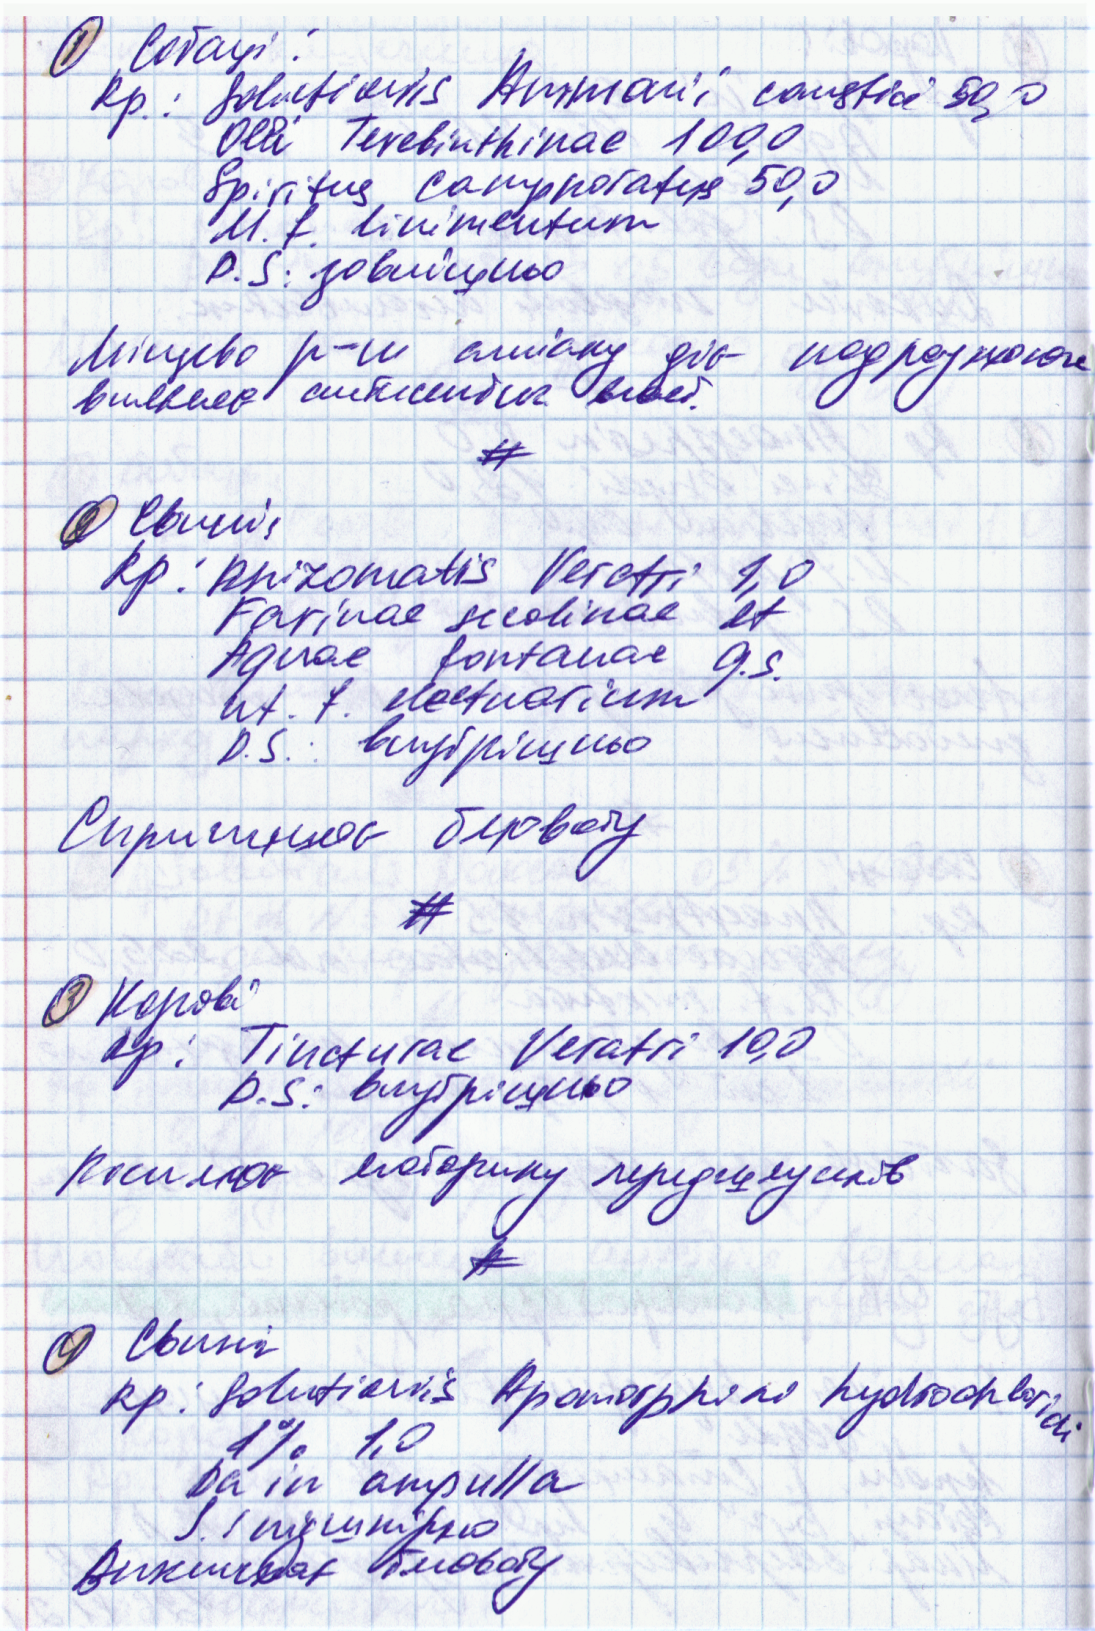 1 Собаці:
Rp.: Solutionis Ammonii caustici 50,0
Olei Terebinthinae 100,0
Spiritus camphoratus 50,0
M. f. linimentum
D.S: зовнішньо
Місцево р-н аміаку діє подразнююче
виявляє антисептич. власт.
#
2 Свині
Rp: Rhizomatis Veratri 1,0
Farinae secalinae et
Aquae fontanae q.s.
ut. f. electuarium
D.S.: внутрішньо
Спричиняє блювоту
#
3 Корові
Rp: Tincturae Veratri 10,0
D.S: внутрішньо
Посилює моторику передшлунків
#
4 Свині
Rp: Solutionis Apomorphini hydrochloridi
1% 1,0
Da in ampulla
S. підшкірно
Викликає блювоту